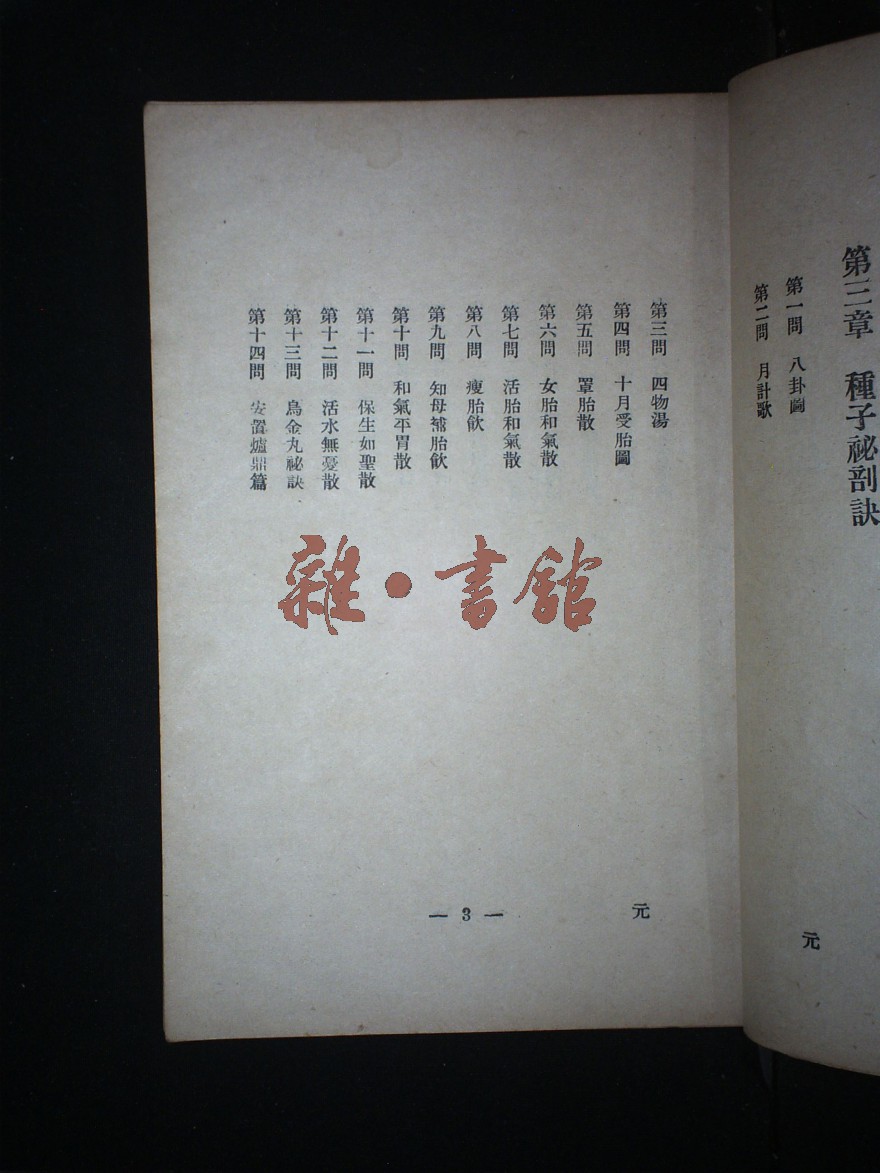 第三章 種子祕剖訣
第一問 八卦圖
第二問 月計歌
元
第三問 四物湯
第四問 十月受胎圖
第五問 罩胎散
第六問 女胎和氣散
第七問 活胎和氣散
第八問 瘦胎飲
第九問 知母補胎飲
第十問 和氣平胃散
第十一問 保生如聖散
第十二問 活水無憂散
第十三問 烏金丸祕訣
第十四問 安置爐鼎篇
元
— 3 —
雜·書館